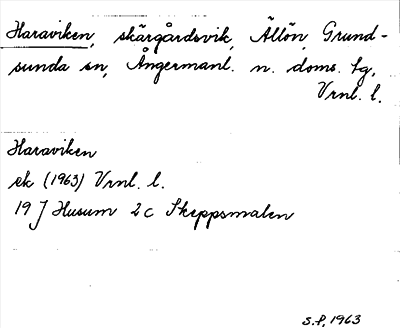 Haraviken, skärgårdsvik, Ällön, Grund-
sunda sn, Ångermanl. n. doms. sg,
Vrnl. l.
Haraviken
ek (1963) Vrnl. l.
19 J Husum 2c Skeppsmalen
S.F. 1963